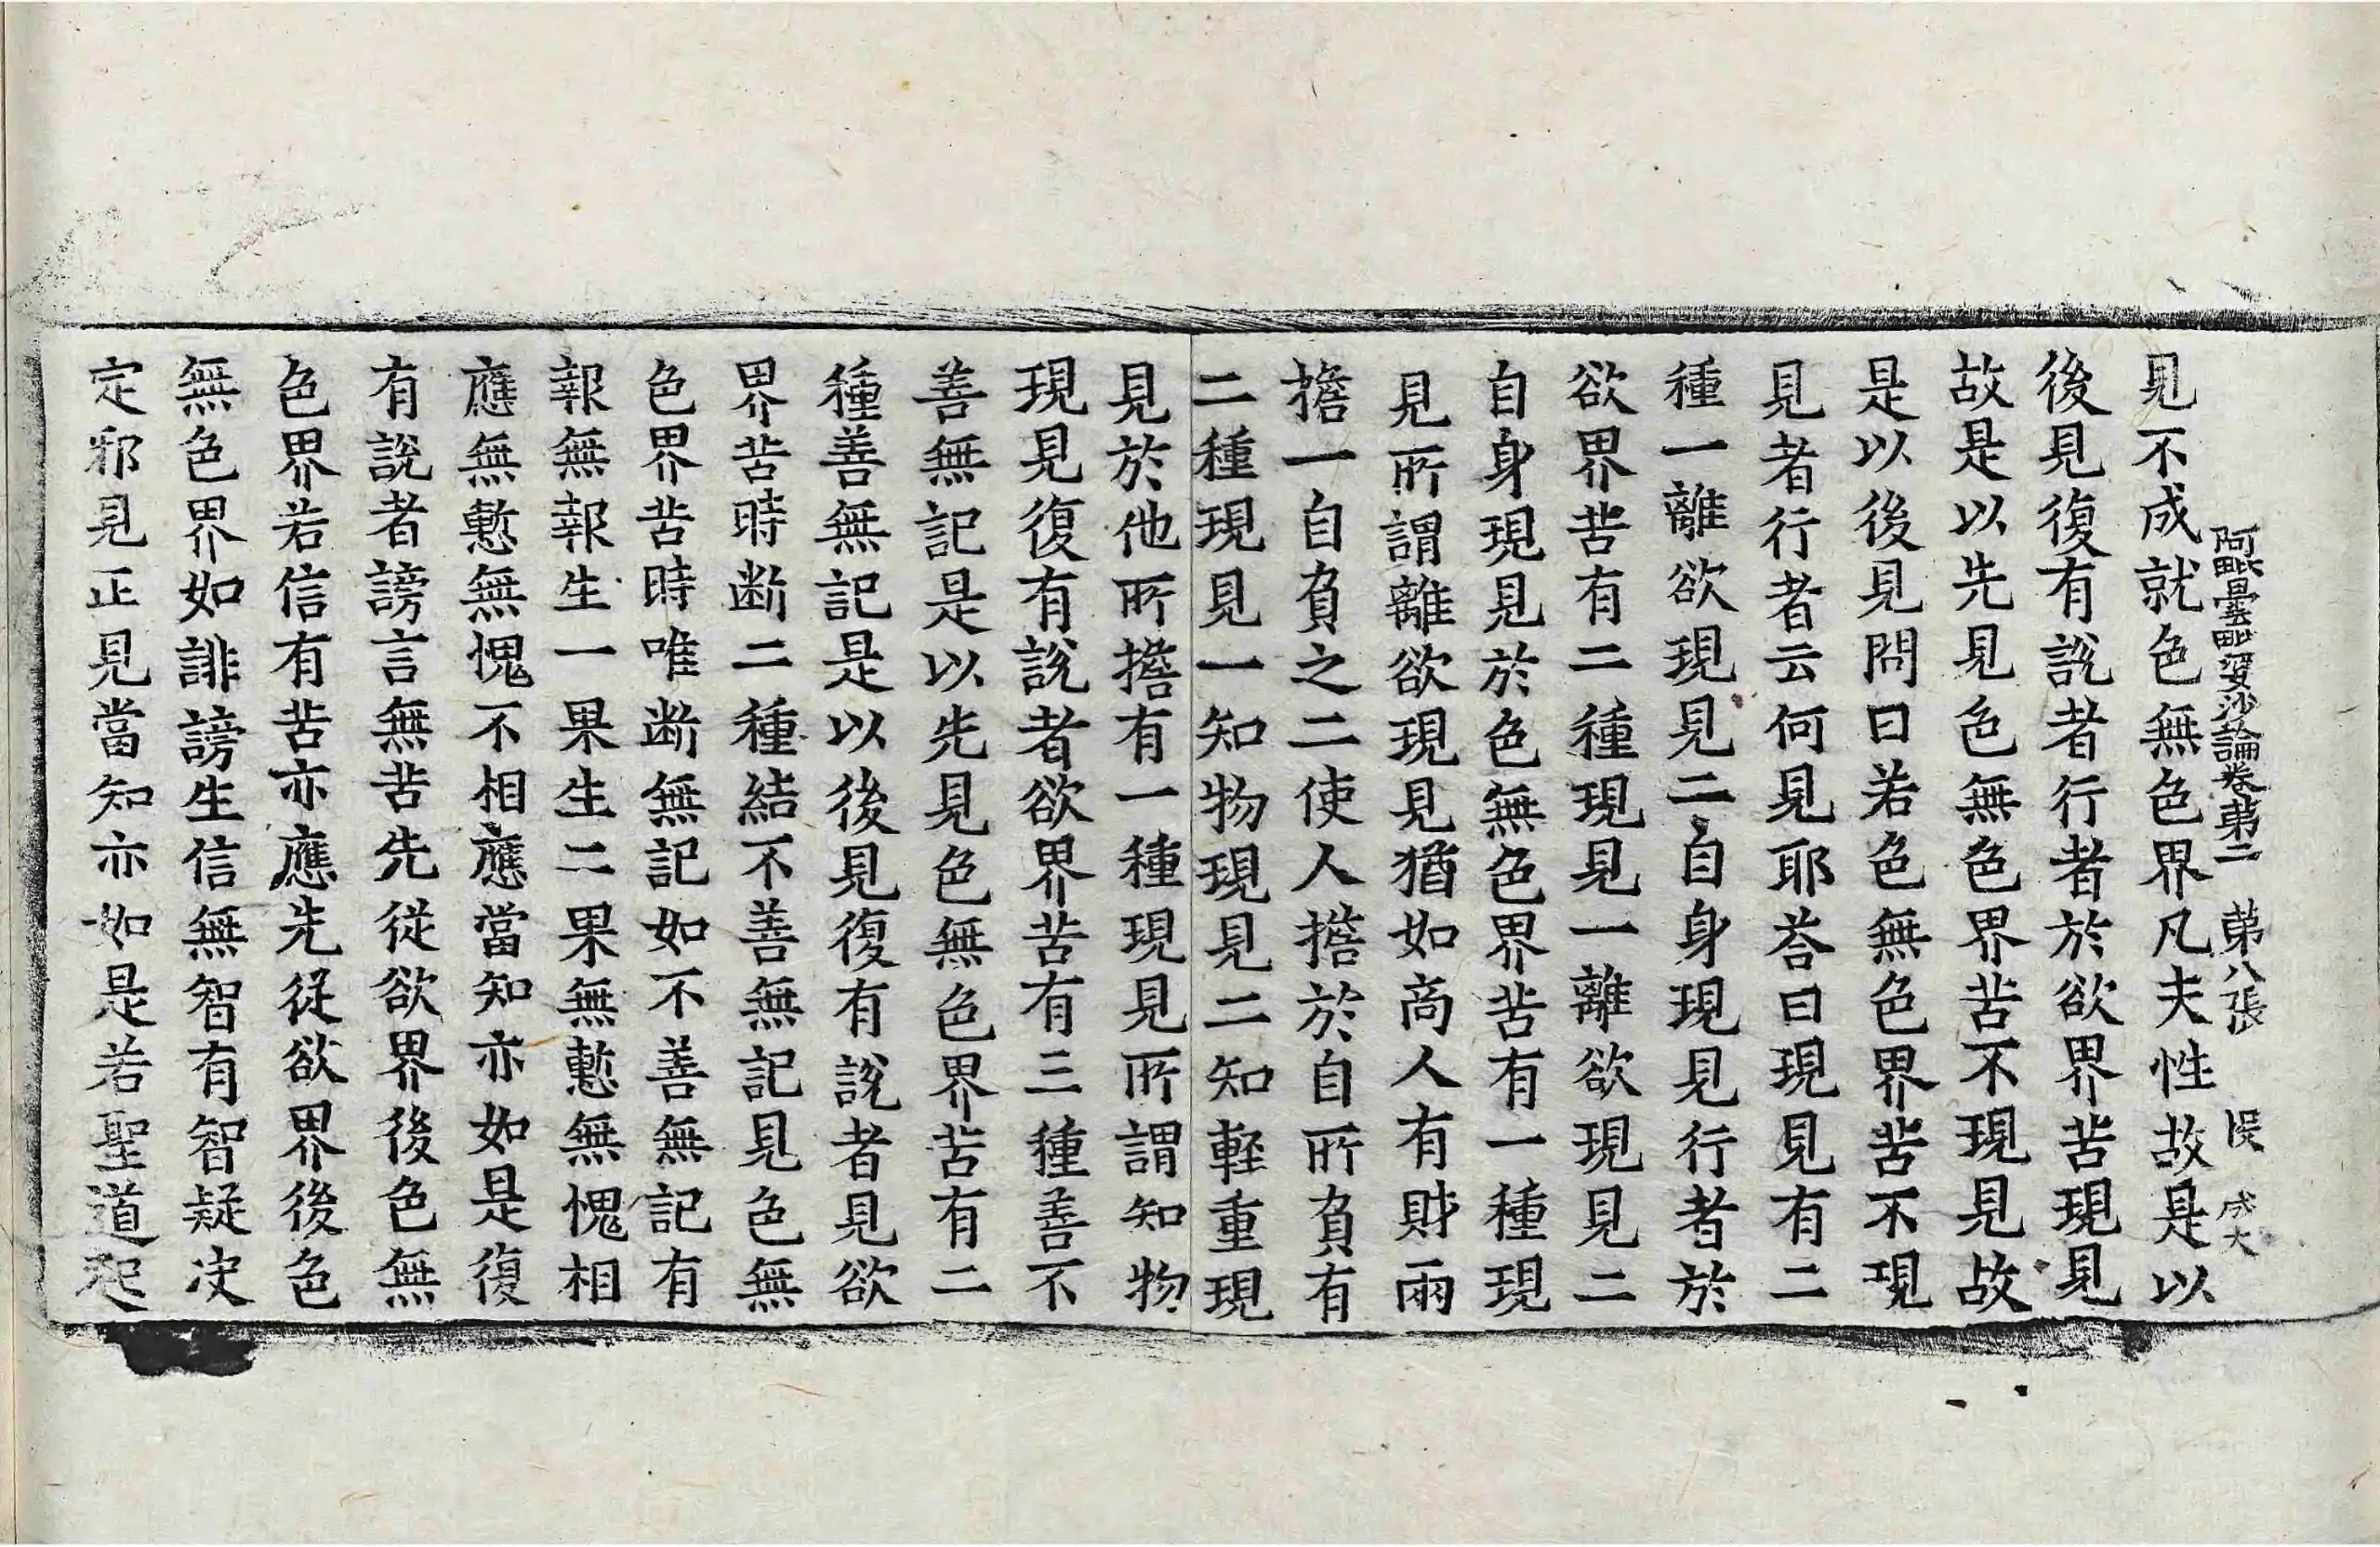 阿毗曇毗婆沙論卷苐二　苐八張　俁　成大
見不成就色無色界凡夫性故是以
後見復有說者行者於欲界苦現見
故是以先見色無色界苦不現見故
是以後見問曰若色無色界苦不現
見者行者云何見耶荅曰現見有二
種一離欲現見二自身現見行者於
欲界苦有二種現見一離欲現見二
自身現見於色無色界苦有一種現
見所謂離欲現見猶如商人有財兩
擔一自負之二使人擔於自所負有
二種現見一知物現見二知輕重現
見於他所擔有一種現見所謂知物
現見復有說者欲界苦有三種善不
善無記是以先見色無色界苦有二
種善無記是以後見復有說者見欲
界苦時断二種結不善無記見色無
色界苦時唯断無記如不善無記有
報無報生一果生二果無慙無愧相
應無慙無愧不相應當知亦如是復
有說者謗言無苦先從欲界後色無
色界若信有苦亦應先從欲界後色
無色界如誹謗生信無智有智疑决
定邪見正見當知亦如是若聖道起